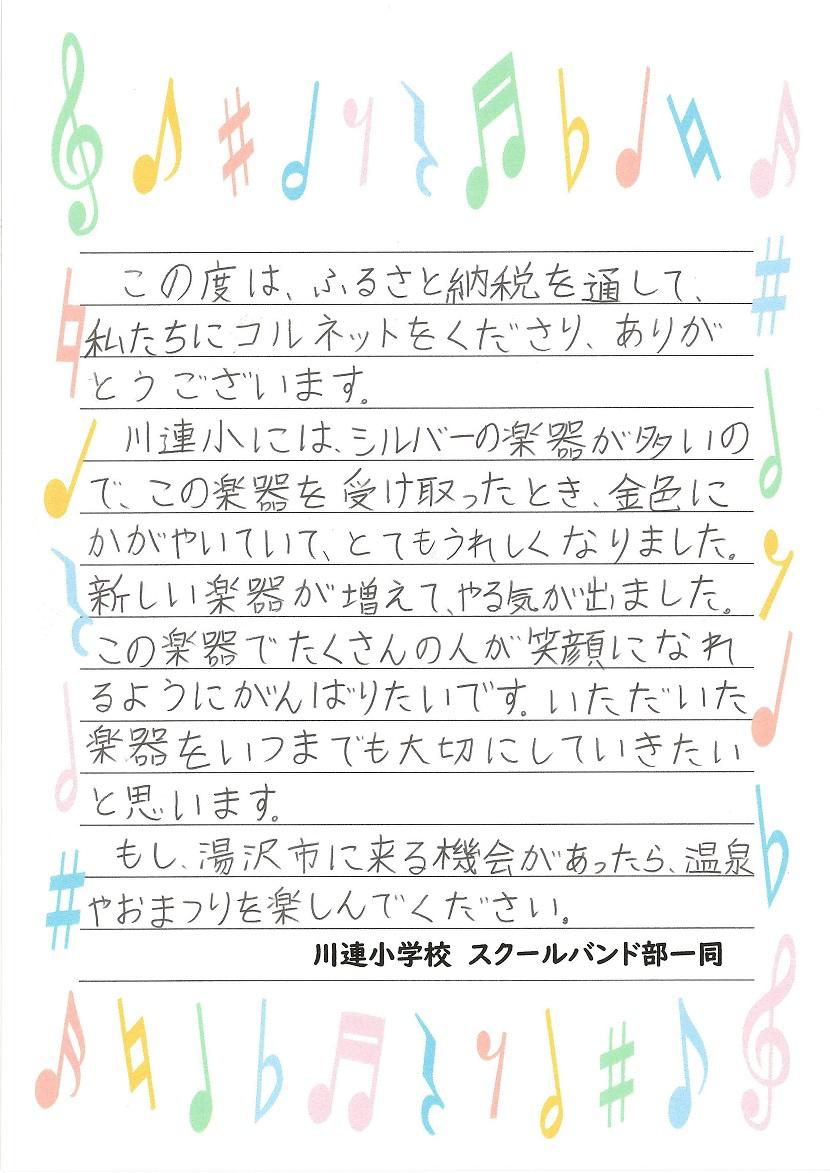 この度は、ふるさと納税を通して、
私たちにコルネットをくださり、ありが
とうございます。
川連小には、シルバーの楽器が多いの
で、この楽器を受け取ったとき、金色に
かがやいていて、とてもうれしくなりました。
新しい楽器が増えて、やる気が出ました。
この楽器でたくさんの人が笑顔になれ
るようにがんばりたいです。いただいた
楽器をいつまでも大切にしていきたい
と思います。
もし、湯沢市に来る機会があったら、温泉
やおまつりを楽しんでください。
川連小学校 スクールバンド部一同